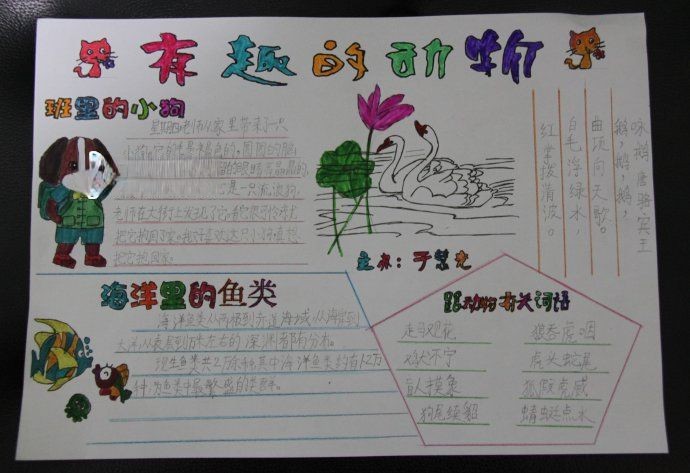 有趣的动物
班里的小狗
星期四老师从家里带来小一只
小狗,它的毛是棕色的,圆圆的脑
的眼睛亮晶晶的,
它是一只流浪狗,
老师在大街上发现了它。看它很可怜就
把它抱回了家。我好喜欢这只小狗真想
把它抱回家。
咏鹅 唐 骆宾王
鹅,鹅,鹅,
曲项向天歌。
白毛浮绿水,
红掌拨清波。
主办:于慧尤
海洋里的鱼类
海洋鱼类从两极到赤道海域,从海岸到
大洋,从表层到万米左右的深渊都有分布。
现生鱼类共2万余种其中海洋鱼类约有1.2万
种,为鱼类中最繁盛的类群。
跟动物有关词语
走马观花
狼吞虎咽
鸡犬不宁
虎头蛇尾
盲人摸象
狐假虎威
狗尾续貂
蜻蜓点水